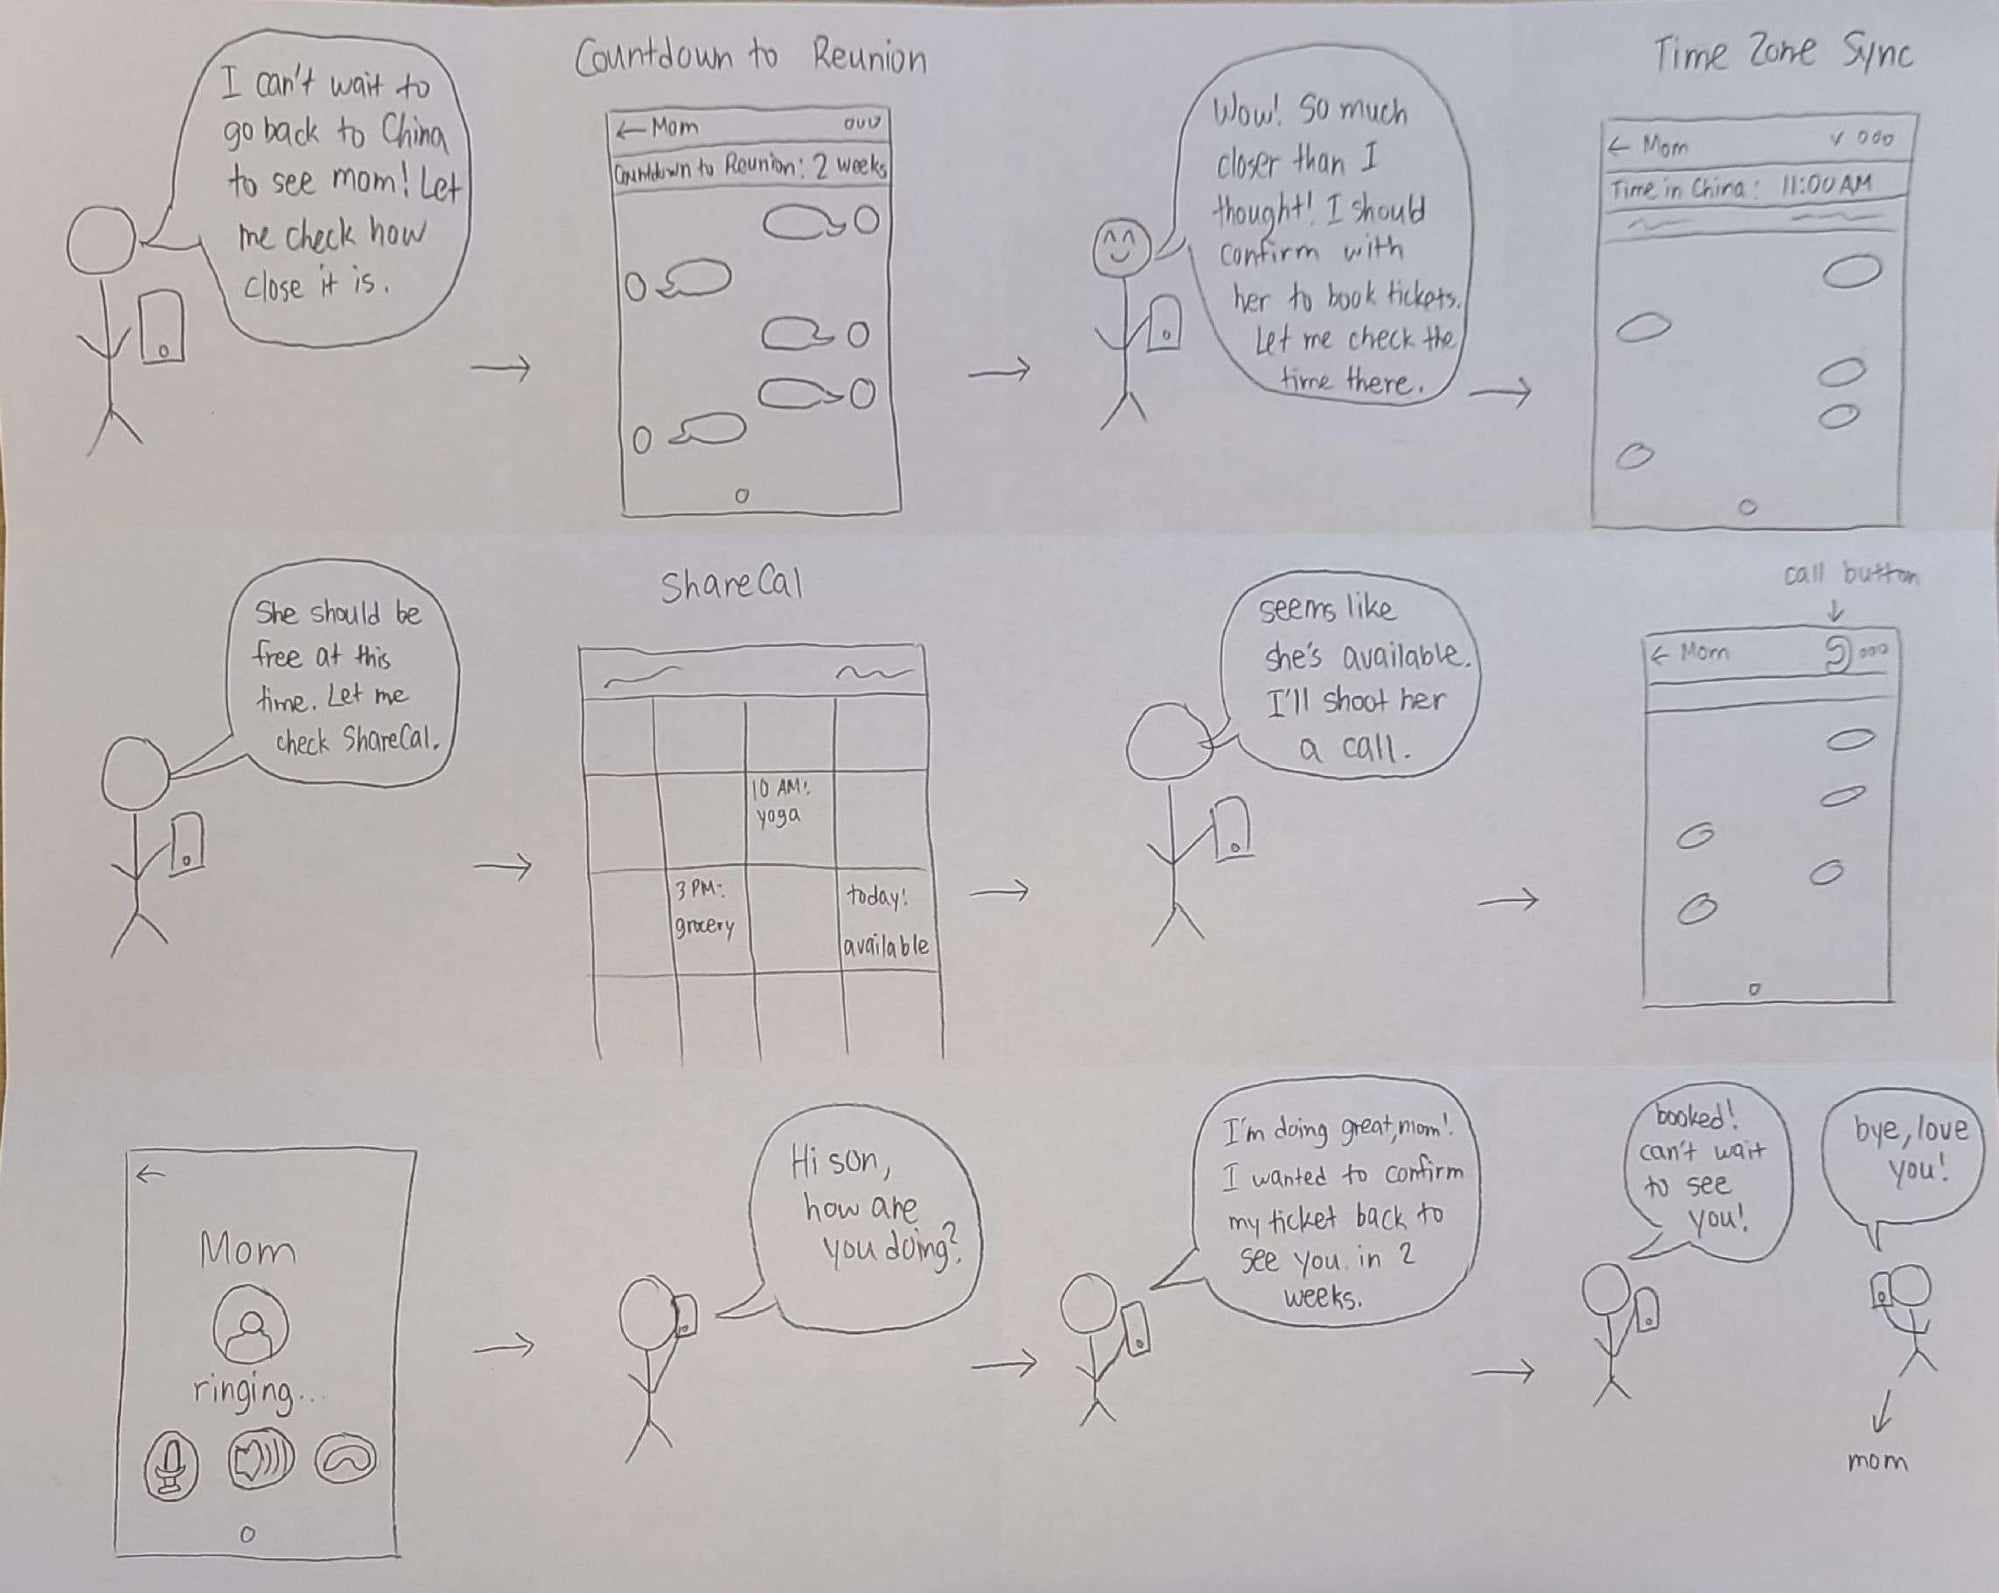 I can't wait to
go back to China
to see mom! Let
me check how
close it is.
Countdown to Reunion
← Mom
Countdown to Reunion: 2 weeks
Wow! So much
closer than I
thought! I should
confirm with
her to book tickets.
Let me check the
time there.
Time Zone Sync
← Mom
Time in China: 11:00 AM
She should be
free at this
time. Let me
check ShareCal.
ShareCal
10 AM:
yoga
3 PM:
grocery
today:
available
seems like
she's available.
I'll shoot her
a call.
call button
← Mom
Mom
ringing...
Hi son,
how are
you doing?
I'm doing great, mom!
I wanted to confirm
my ticket back to
see you in 2
weeks.
booked!
can't wait
to see
you!
bye, love
you!
mom